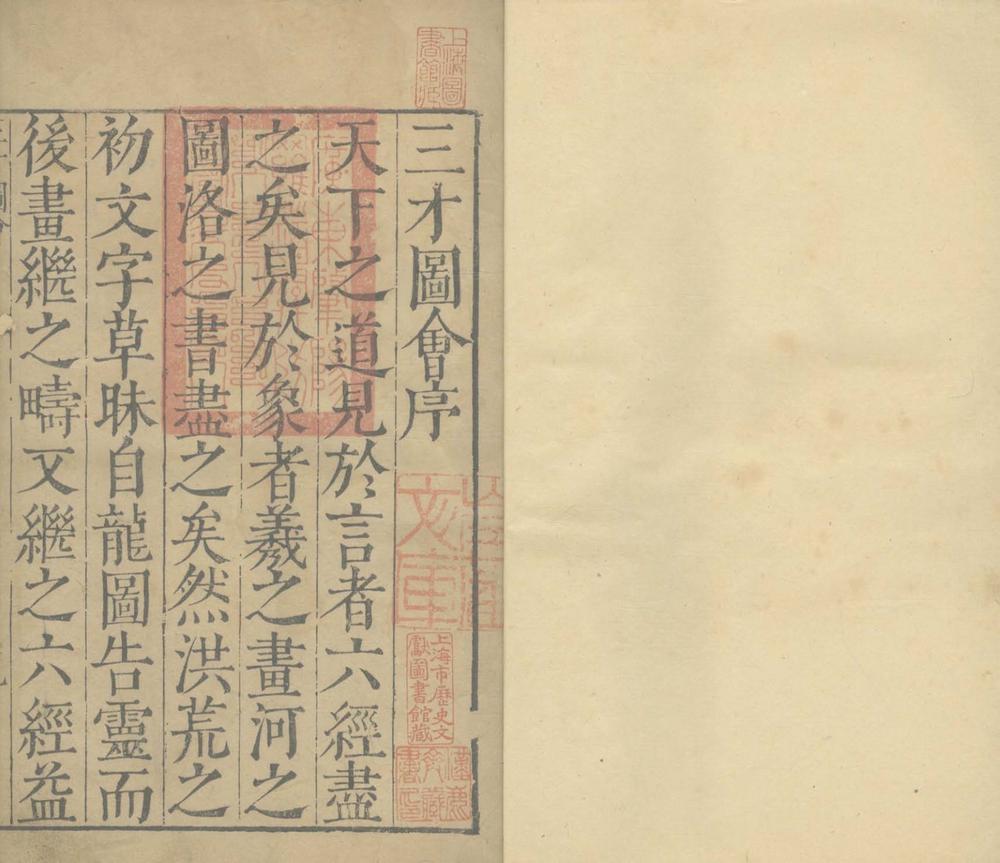 三才圖會序
天下之道見於言者六經盡
之矣見於象者羲之畫河之
圖洛之書盡之矣然洪荒之
初文字草昧自龍圖告靈而
後畫繼之疇又繼之六經益
上海圖書館藏
上海市歷史文獻圖書館藏